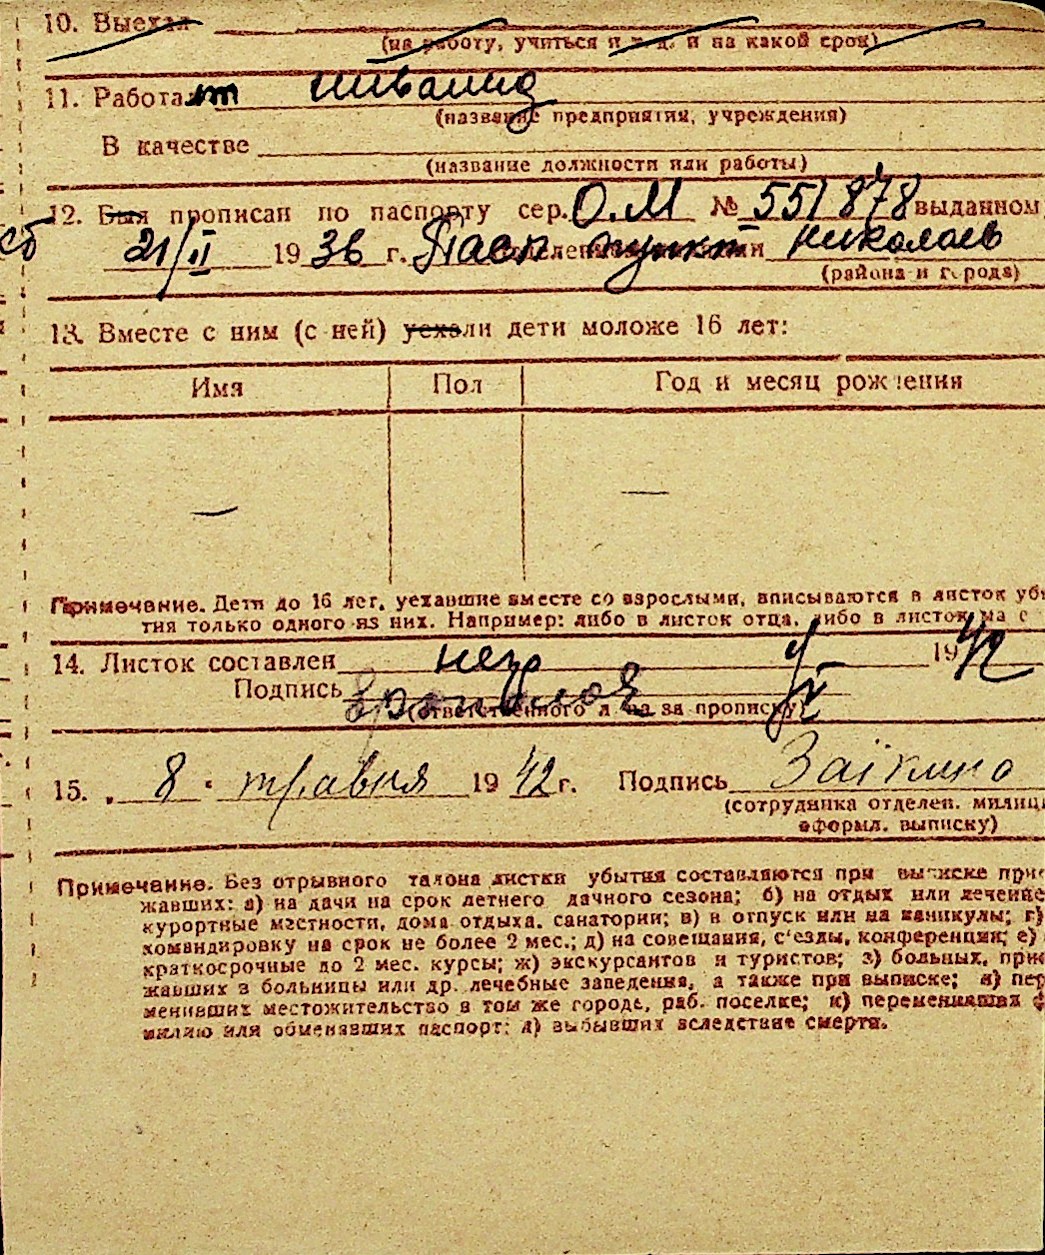 10. Выехал
(на работу, учиться и т. д. и на какой срок)
11. Работает инвалид
(название предприятия, учреждения)
В качестве
(название должности или работы)
12. Был прописан по паспорту сер. О.М № 551878 выданном
21/II 1936 г. Пасп пункт Николаев
(района и города)
13. Вместе с ним (с ней) уехали дети моложе 16 лет:
Имя Пол Год и месяц рождения
— —
Примечание. Дети до 16 лет, уехавшие вместе со взрослыми, вписываются в листок убы
тия только одного из них. Например: либо в листок отца, либо в листок ма
14. Листок составлен 1942
Подпись
(ответственного л за прописку)
15. „ 8 " травня 1942 г. Подпись Заікино
(сотрудника отделен. милиц
оформл. выписку)
Примечание. Без отрывного талона листки убытия составляются при выписке прие
жавших: а) на дачи на срок летнего дачного сезона; б) на отдых или лечение
курортные местности, дома отдыха, санатории; в) в отпуск или на каникулы; г)
командировку на срок не более 2 мес.; д) на совещания, с'езды, конференции; е)
краткосрочные до 2 мес. курсы; ж) экскурсантов и туристов; з) больных, прие
жавших в больницы или др. лечебные заведения, а также при выписке; и) пер
менивших местожительство в том же городе, раб. поселке; к) переменивших ф
милию или обменявших паспорт; л) выбывших вследствие смерти.